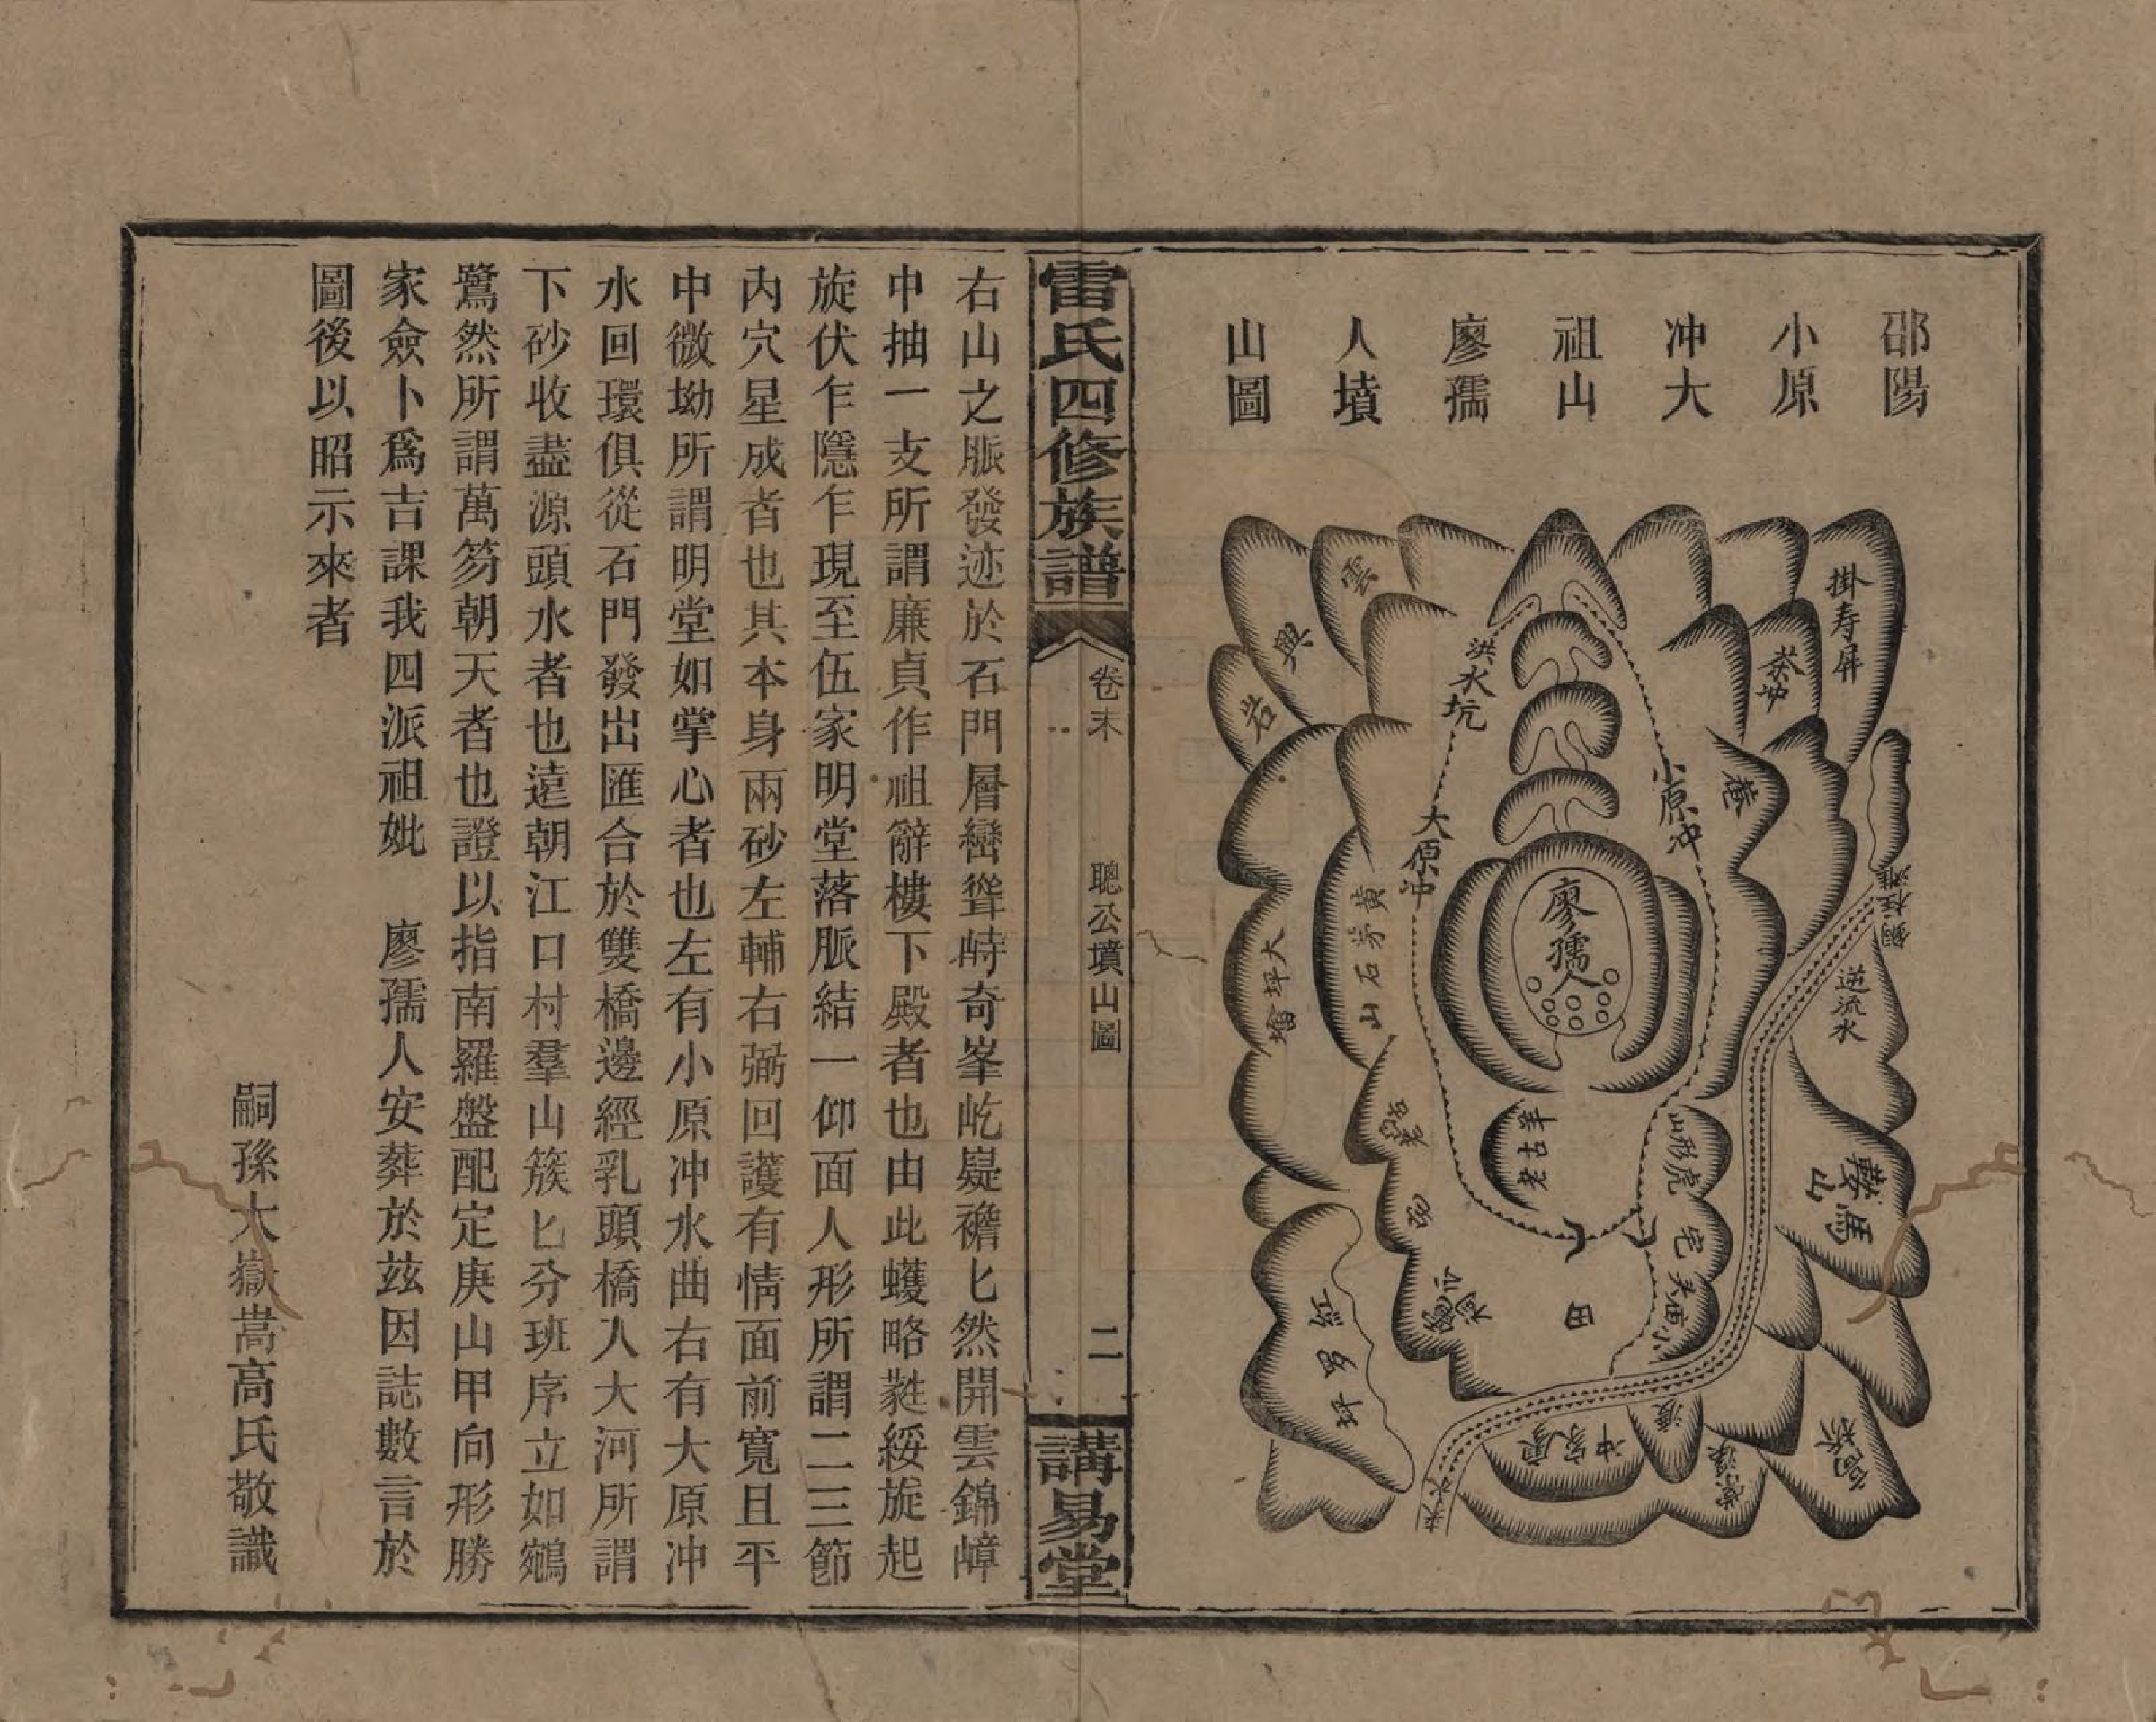 邵陽
小原
冲大
祖山
廖孺
人墳
山圖
掛寿屏
雲
興
岩
洪水坑
小原冲
大原冲
廖孺人
黄茅石山
大坪
逆流水
羊古老
馬鞍山
虎形山
田
高桥
廖家冲
来水
雷氏四修族譜
卷末
聰公墳山圖
二
講易堂
右山之脈發迹於石門層巒聳峙奇峯屹嶷襜匕然開雲錦嶂
中抽一支所謂廉貞作祖辭樓下殿者也由此蠖略蕤綏旋起
旋伏乍隱乍現至伍家明堂落脈結一仰面人形所謂二三節
内穴星成者也其本身兩砂左輔右弼回護有情面前寬且平
中微坳所謂明堂如掌心者也左有小原冲水曲右有大原冲
水回環俱從石門發出匯合於雙橋邊經乳頭橋人大河所謂
下砂收盡源頭水者也遠朝江口村羣山簇匕分班序立如鵷
鷺然所謂萬笏朝天者也證以指南羅盤配定庚山甲向形勝
家僉卜爲吉課我四派祖妣　廖孺人安葬於兹因誌數言於
圖後以昭示來者
嗣孫大嶽嵩高氏敬識